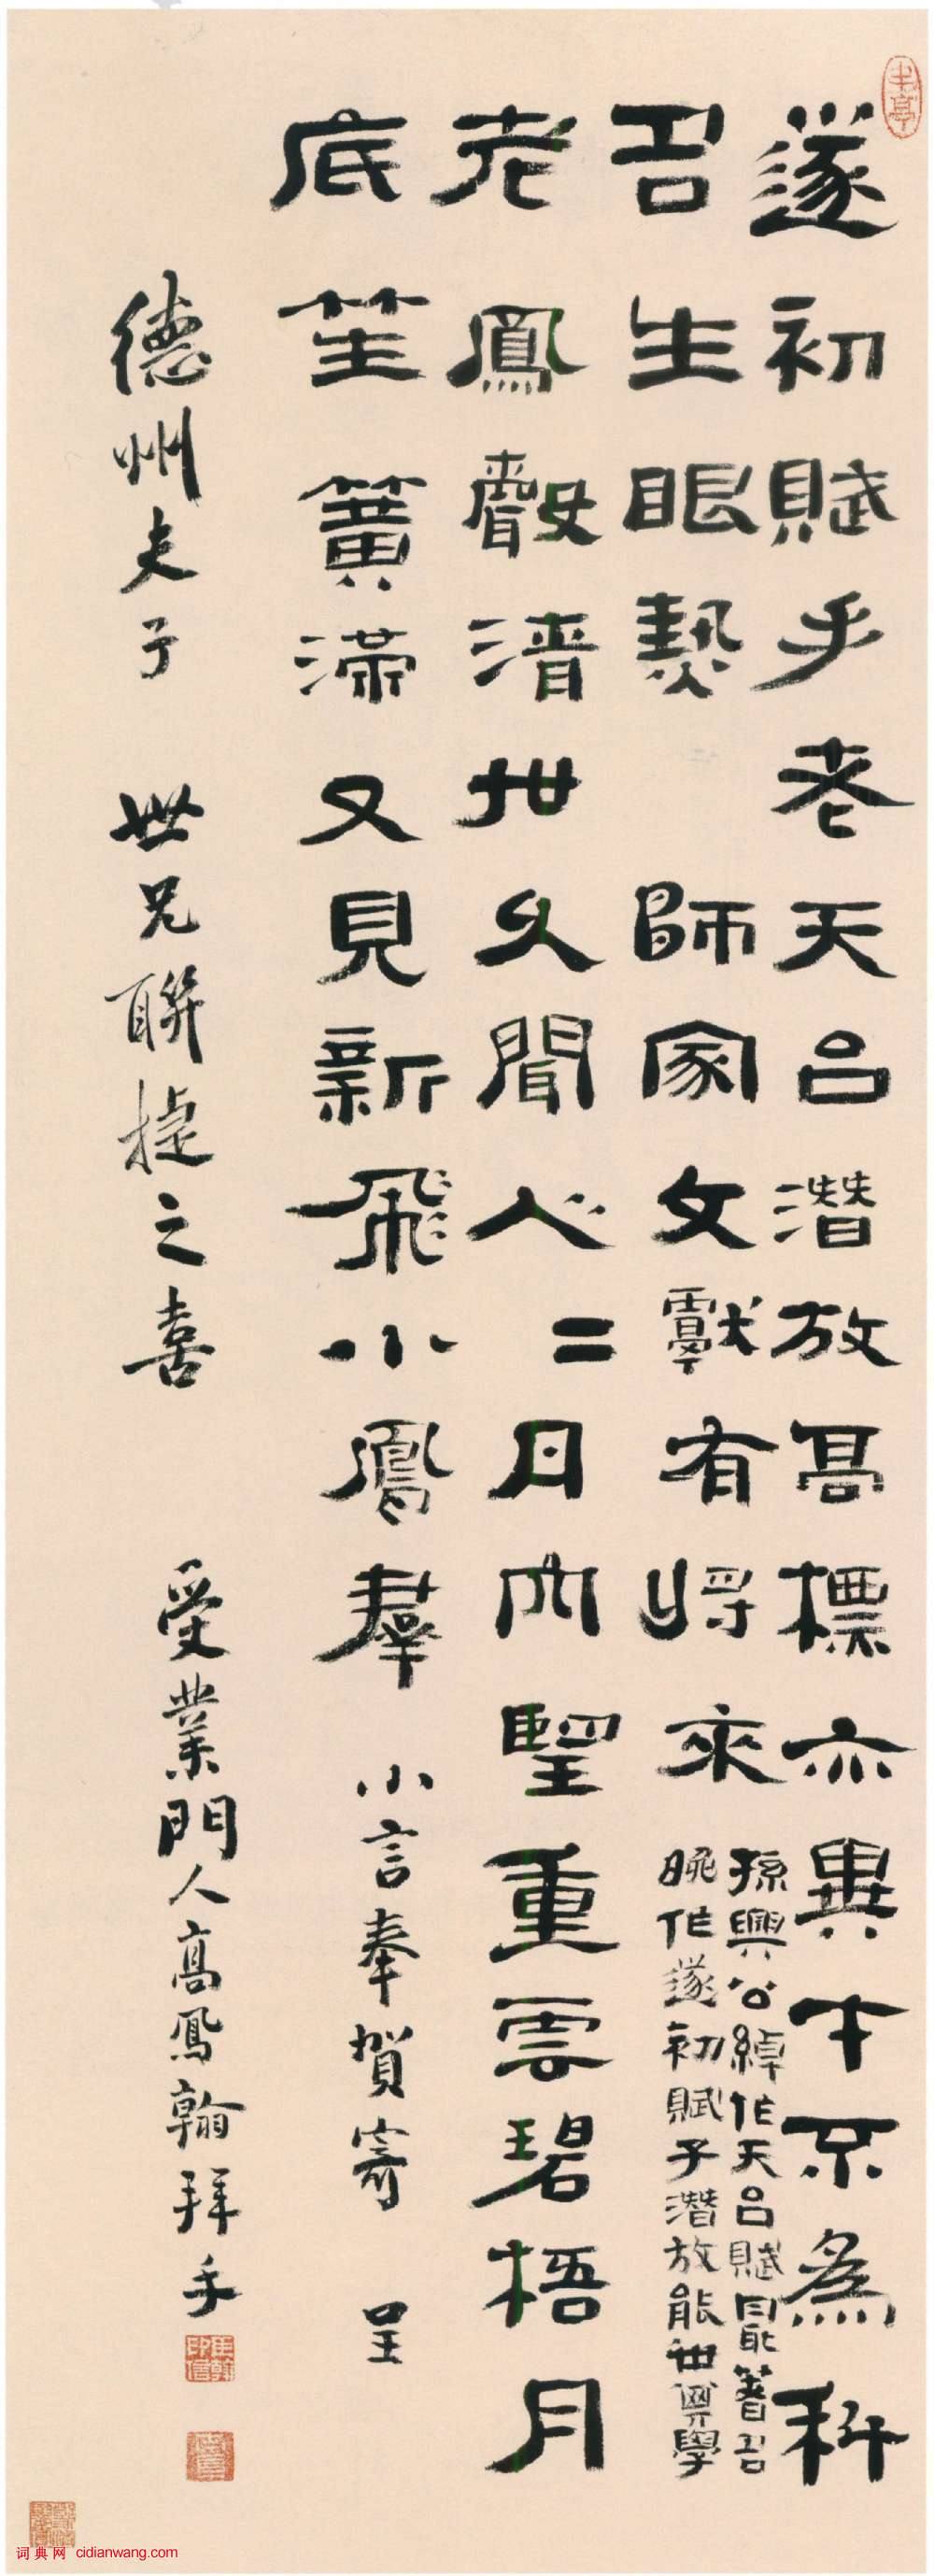 半亭
遂初賦手老天台潛放高標亦異才不為科
名生眼熱 師家文獻有將來
孫興公綽作天台賦最著名
晚作遂初賦子潛放能世其學
老鳳聲清世久聞心〻日內望重雲碧梧月
底笙簧滿又見新飛小鳳羣 小言奉賀寄 呈
德州夫子 世兄聯捷之喜 受業門人高鳳翰拜手
词典网 cidianwang.com